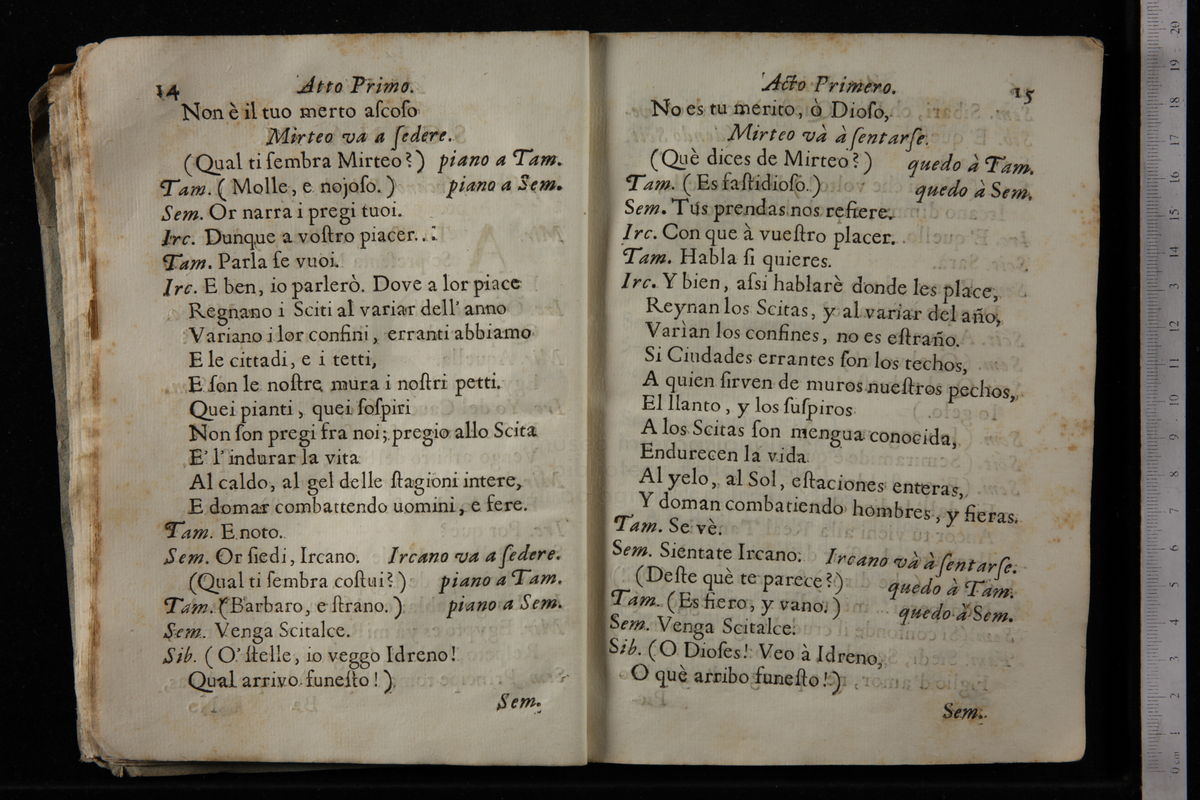 14 Atto Primo.
Non è il tuo merto aſcoſo
Mirteo và a ſedere.
(Qual ti ſembra Mirteo?) piano a Tam.
Tam. (Molle, e nojoſo.) piano a Sem.
Sem. Or narra i pregi tuoi.
Irc. Dunque a voſtro piacer...
Tam. Parla ſe vuoi.
Irc. E ben, io parlerò. Dove a lor piace
Regnano i Sciti al variar dell' anno
Variano i lor confini, erranti abbiamo
E le cittadi, e i tetti,
E ſon le noſtre mura i noſtri petti.
Quei pianti, quei ſoſpiri
Non ſon pregi fra noi; pregio allo Scita
E' l' indurar la vita
Al caldo, al gel delle ſtagioni intere,
E domar combattendo uomini, e fere.
Tam. E noto.
Sem. Or ſiedi, Ircano. Ircano va a ſedere.
(Qual ti ſembra coſtui?) piano a Tam.
Tam. (Barbaro, e ſtrano.) piano a Sem.
Sem. Venga Scitalce.
Sib. (O' ſtelle, io veggo Idreno!
Qual arrivo funeſto!)
Sem.
Acto Primero. 15
No es tu merito, ò Dioſo,
Mirteo và à ſentarſe.
(Què dices de Mirteo?) quedo à Tam.
Tam. (Es faſtidioſo.) quedo à Sem.
Sem. Tus prendas nos refiere.
Irc. Con que à vueſtro placer.
Tam. Habla ſi quieres.
Irc. Y bien, aſsi hablarè donde les place,
Reynan los Scitas, y al variar del año,
Varìan los confines, no es eſtraño.
Si Ciudades errantes ſon los techos,
A quien ſirven de muros nueſtros pechos,
El llanto, y los ſuſpiros
A los Scitas ſon mengua conocida,
Endurecen la vida
Al yelo, al Sol, eſtaciones enteras,
Y doman combatiendo hombres, y fieras.
Tam. Se vè.
Sem. Sientate Ircano. Ircano và à ſentarſe.
(Deſte què te parece?) quedo à Tam.
Tam. (Es fiero, y vano.) quedo à Sem.
Sem. Venga Scitalce.
Sib. (O Dioſes! Veo à Idreno,
O què arribo funeſto!)
Sem.